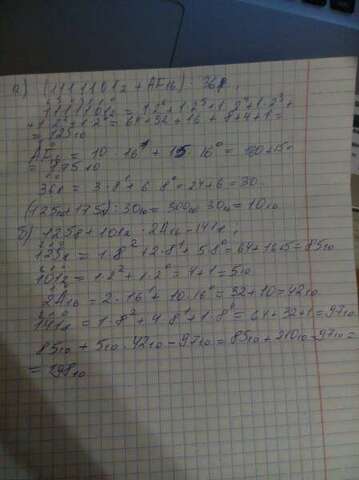 а) (1111101₂ + AF₁₆) : 36₈;
1111101₂ = 1·2⁶ + 1·2⁵ + 1·2⁴ + 1·2³ +
+ 1·2² + 1·2⁰ = 64 + 32 + 16 + 8 + 4 + 1 =
= 125₁₀
AF₁₆ = 10·16¹ + 15·16⁰ = 160 + 15 =
= 175₁₀
36₈ = 3·8¹ + 6·8⁰ = 24 + 6 = 30
(125₁₀ + 175₁₀) : 30₁₀ = 300₁₀ : 30₁₀ = 10₁₀
б) 125₈ + 101₂ · 2A₁₆ - 141₈;
125₈ = 1·8² + 2·8¹ + 5·8⁰ = 64 + 16 + 5 = 85₁₀
101₂ = 1·2² + 1·2⁰ = 4 + 1 = 5₁₀
2A₁₆ = 2·16¹ + 10·16⁰ = 32 + 10 = 42₁₀
141₈ = 1·8² + 4·8¹ + 1·8⁰ = 64 + 32 + 1 = 97₁₀
85₁₀ + 5₁₀ · 42₁₀ - 97₁₀ = 85₁₀ + 210₁₀ - 97₁₀ =
= 198₁₀